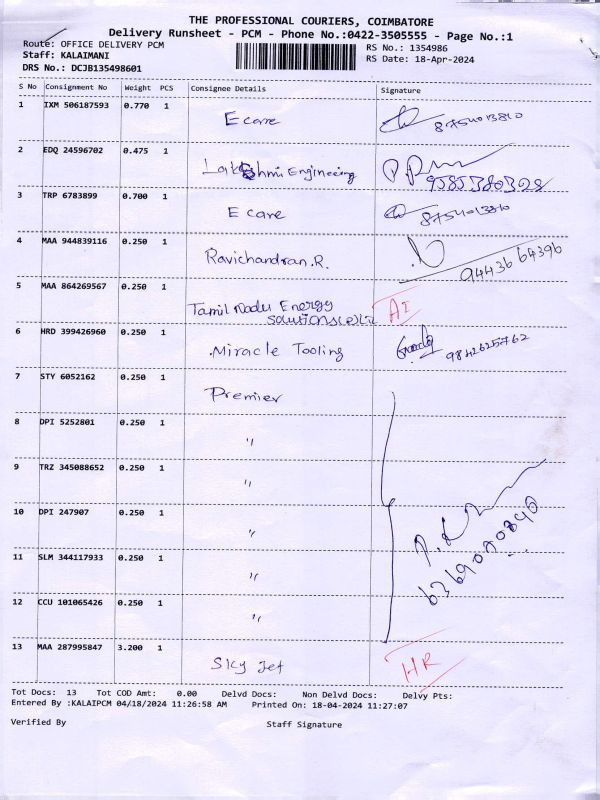 THE PROFESSIONAL COURIERS, COIMBATORE
Delivery Runsheet - PCM - Phone No.:0422-3505555 - Page No.:1
Route: OFFICE DELIVERY PCM
RS No.: 1354986
Staff: KALAIMANI
RS Date: 18-Apr-2024
DRS No.: DCJB135498601
S No Consignment No Weight PCS Consignee Details Signature
1 IXM 506187593 0.770 1 E care 8754013810
2 EDQ 24596702 0.475 1 Lakshmi Engineering 9585380328
3 TRP 6783899 0.700 1 E care 8754013810
4 MAA 944839116 0.250 1 Ravichandran.R. 9443664396
5 MAA 864269567 0.250 1 Tamil Nadu Energy
Solutions(P)Ltd AI
6 HRD 399426960 0.250 1 Miracle Tooling 9842625762
7 STY 6052162 0.250 1 Premier
8 DPI 5252801 0.250 1 "
9 TRZ 345088652 0.250 1 "
10 DPI 247907 0.250 1 "
11 SLM 344117933 0.250 1 "
6369080840
12 CCU 101065426 0.250 1 "
13 MAA 287995847 3.200 1 Sky Jet HR
Tot Docs: 13 Tot COD Amt: 0.00 Delvd Docs: Non Delvd Docs: Delvy Pts:
Entered By :KALAIPCM 04/18/2024 11:26:58 AM Printed On: 18-04-2024 11:27:07
Verified By Staff Signature